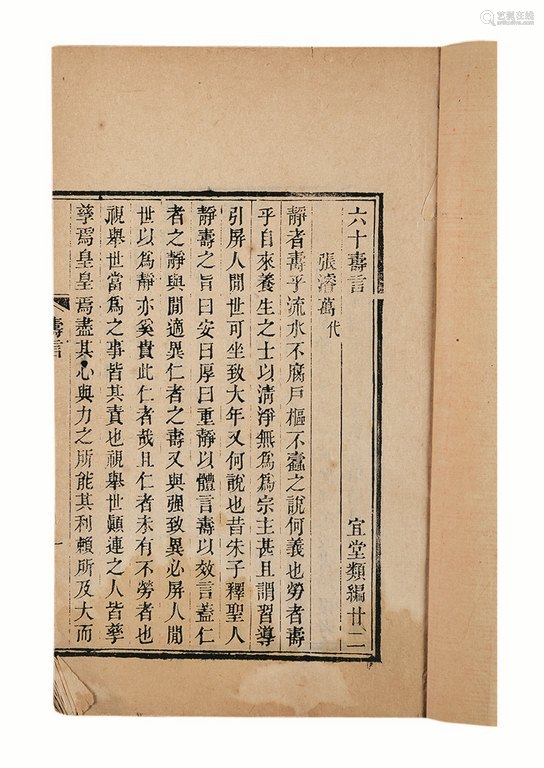 六十壽言 宜堂類編廿二
張濬萬代
靜者壽乎流水不腐戶樞不蠹之說何義也勞者壽
乎自來養生之士以清淨無爲爲宗主甚且謂習導
引屏人間世可坐致大年又何說也昔朱子釋聖人
靜壽之旨曰安曰厚曰重靜以體言壽以效言蓋仁
者之靜與閒適異仁者之壽又與强致異必屏人間
世以爲靜亦奚貴此仁者哉且仁者未有不勞者也
視舉世當爲之事皆其責也視舉世顚連之人皆孳
孳焉皇皇焉盡其心與力之所能其利賴所及大而
壽言
一
艺狐在线
www.artfoxlive.com